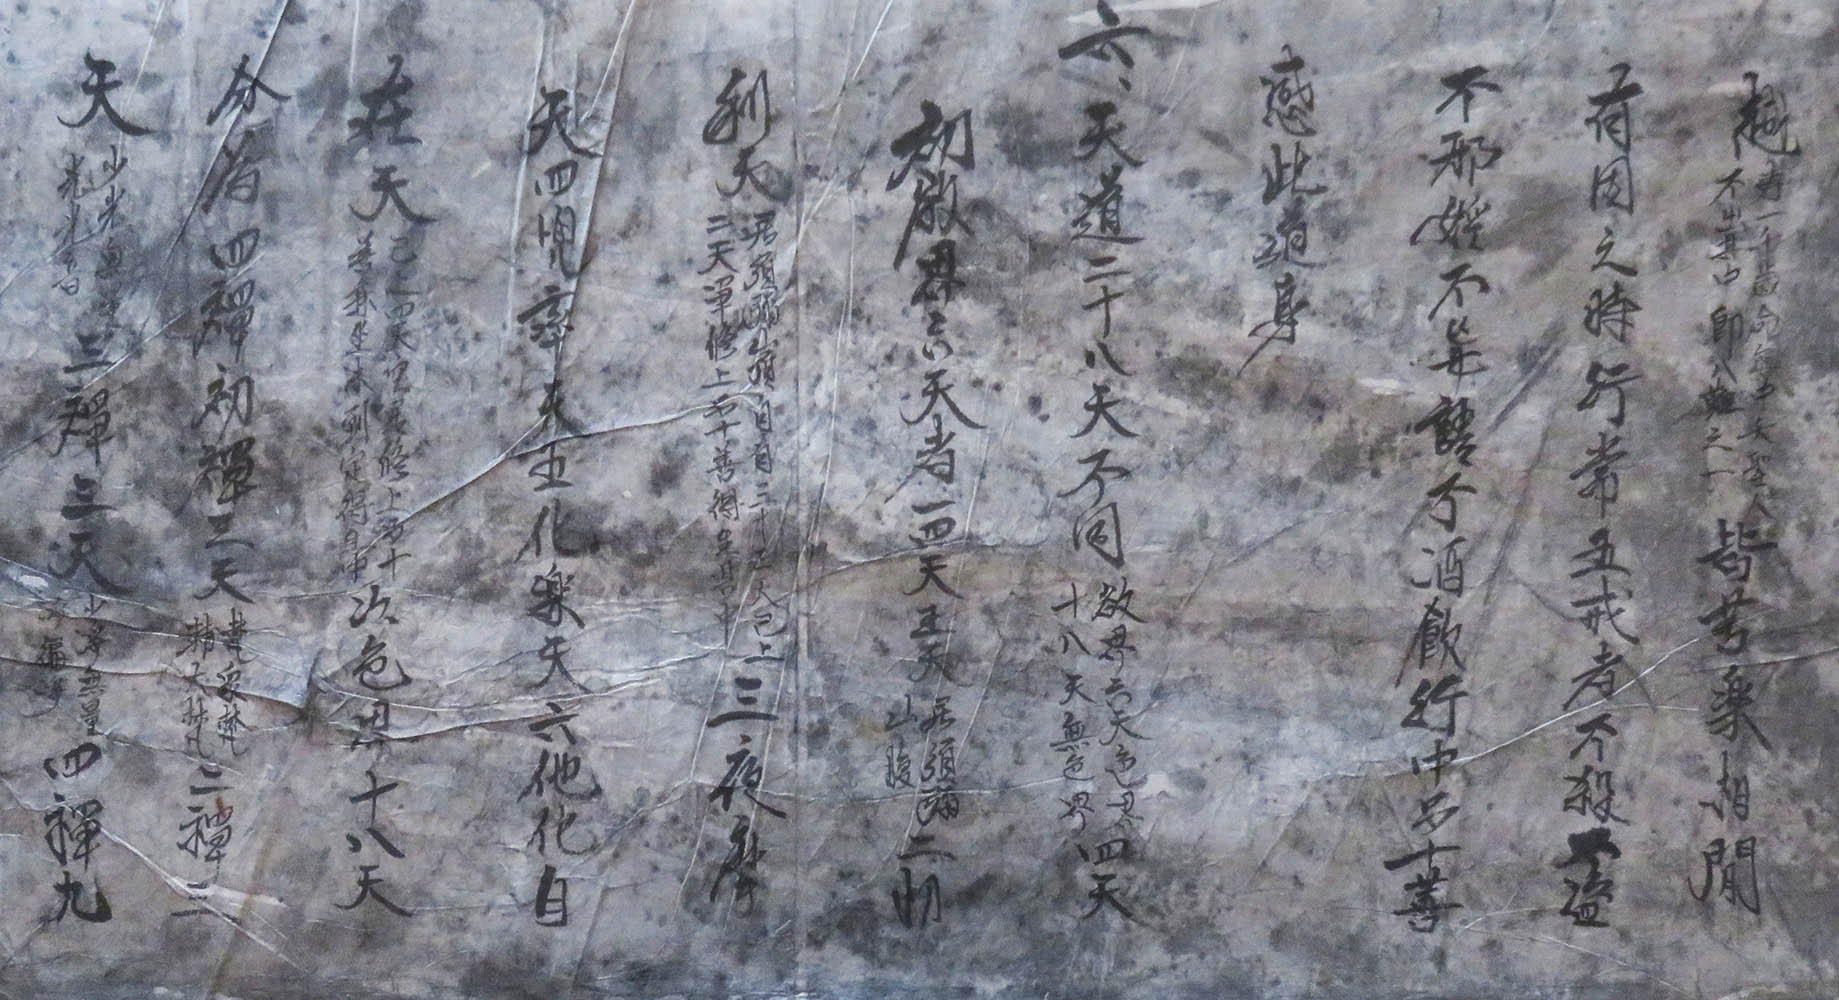 越壽一千歲命無中夭聖人不出其中即八難之一皆苦樂相間
因之時行常五戒者不殺不盜
不邪婬不妄語不酒飲行中品十善
感此道身
六、天道二十八天不同欲界六天色界十八天無色界四天
初欲界六天者一四天王天居須彌山腹二忉
利天居須彌山頂自有三十三天已上二天單修上品十善得生其中三夜摩
天四兜率天五化樂天六他化自
在天已上四天空居修上品十善兼坐未到定得生其中次色界十八天
分為四禪初禪三天梵眾梵輔大梵二禪三
天少光無量光光音三禪三天少淨無量淨遍淨四禪九